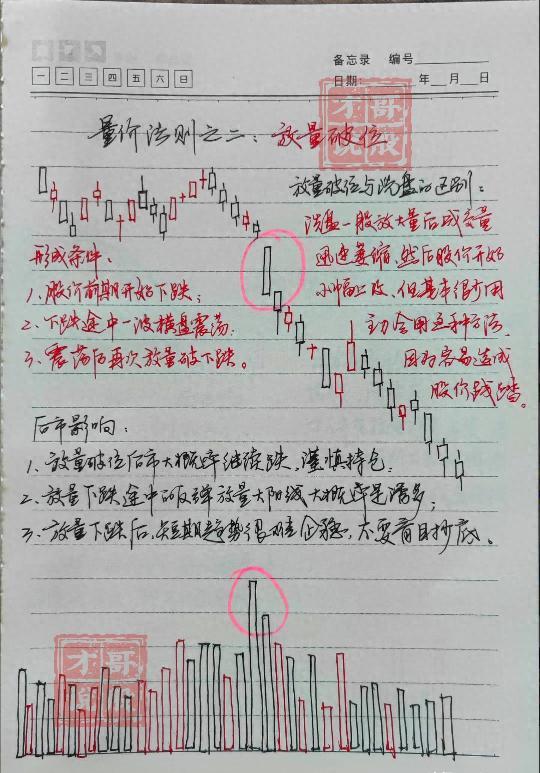 备忘录 编号
一 二 三 四 五 六 日
日期: 年 月 日
才哥
说股
量价法则之二：放量破位
放量破位与洗盘的区别：
洗盘一般放大量后成交量
迅速萎缩，然后股价开始
小幅上攻，但基本很少用
主力会用这种方法，
因为容易造成
股价践踏。
形成条件：
1、股价前期开始下跌；
2、下跌途中一波横盘震荡；
3、震荡后再次放量破下跌。
后市影响：
1、放量破位后市大概率继续跌，谨慎持仓；
2、放量下跌途中的反弹放量大阳线大概率是诱多；
3、放量下跌后，短期趋势很难企稳，不要盲目抄底。
才哥
说股